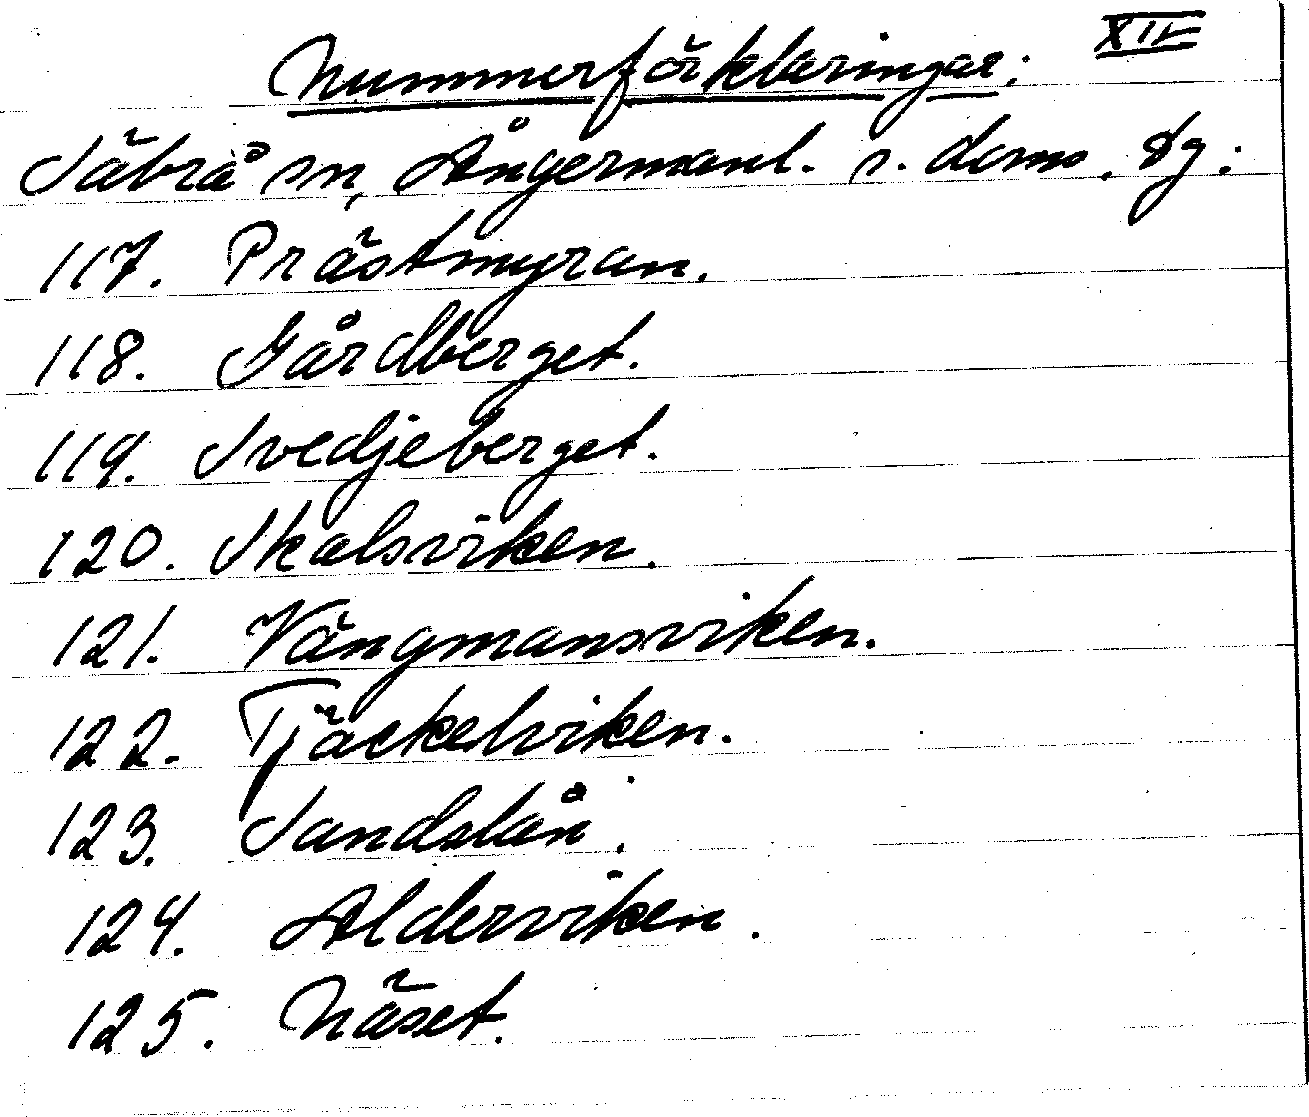 XII
Nummerförklaringar:
Säbrå sn, Ångermanl. s. doms. dg:
117. Prästmyran.
118. Gårdberget.
119. Svedjeberget.
120. Skalsviken.
121. Vängmansviken.
122. Tjäckelviken.
123. Sandslån.
124. Alderviken.
125. Näset.